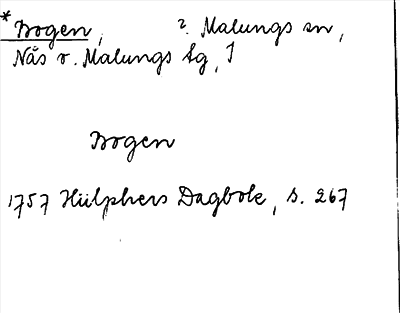 *Bogen, ? Malungs sn,
Nås o. Malungs tg, ⌉
Bogen
1757 Hülphers Dagbok, s. 267